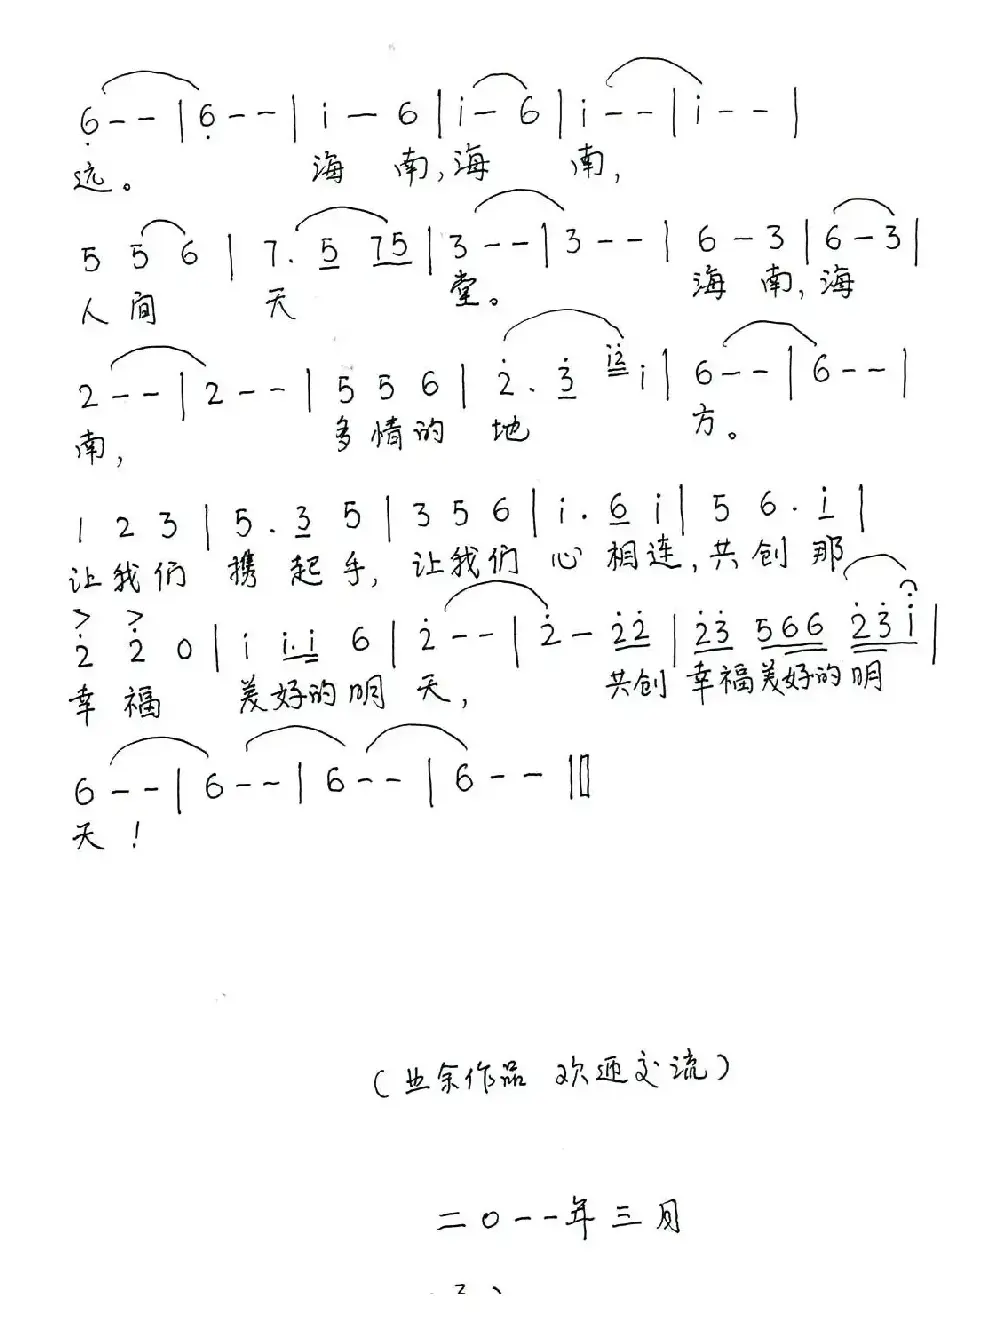 6 - - | 6 - - | i — 6 | i — 6 | i - - | i - - |
远。 海 南,海 南,
5 5 6 | 7. 5 75 | 3 - - | 3 - - | 6 - 3 | 6 - 3 |
人 间 天 堂。 海 南,海
2 - - | 2 - - | 5 5 6 | 2. 3 i2 i | 6 - - | 6 - - |
南, 多情的 地 方。
1 2 3 | 5. 3 5 | 3 5 6 | i. 6 i | 5 6. i |
让我们 携 起 手, 让我们 心 相连,共创 那
> >
2 2 0 | i i.i 6 | 2 - - | 2 - 22 | 23 566 23i |
幸 福 美好的明 天, 共创 幸福美好的明
6 - - | 6 - - | 6 - - | 6 - - ‖
天！
(业余作品 欢迎交流)
二〇一一年三月